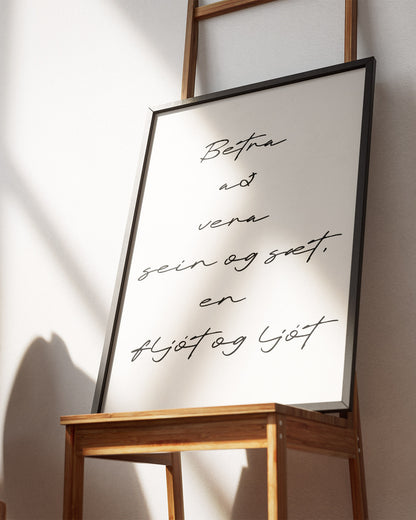 Betra
að
vera
sein og sæt,
en
fljót og ljót